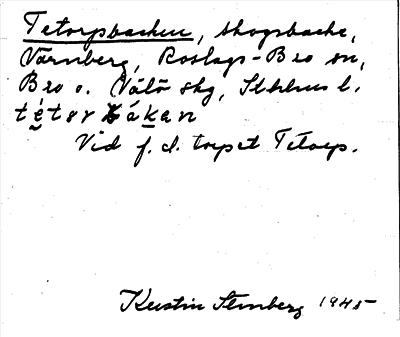 Tetorpsbacken, skogsbacke,
Värnberg, Roslags-Bro sn,
Bro o. Vätö skg, Sthlms l.
Vid f. d. torpet Tetorp.
Kerstin Stenberg 1945